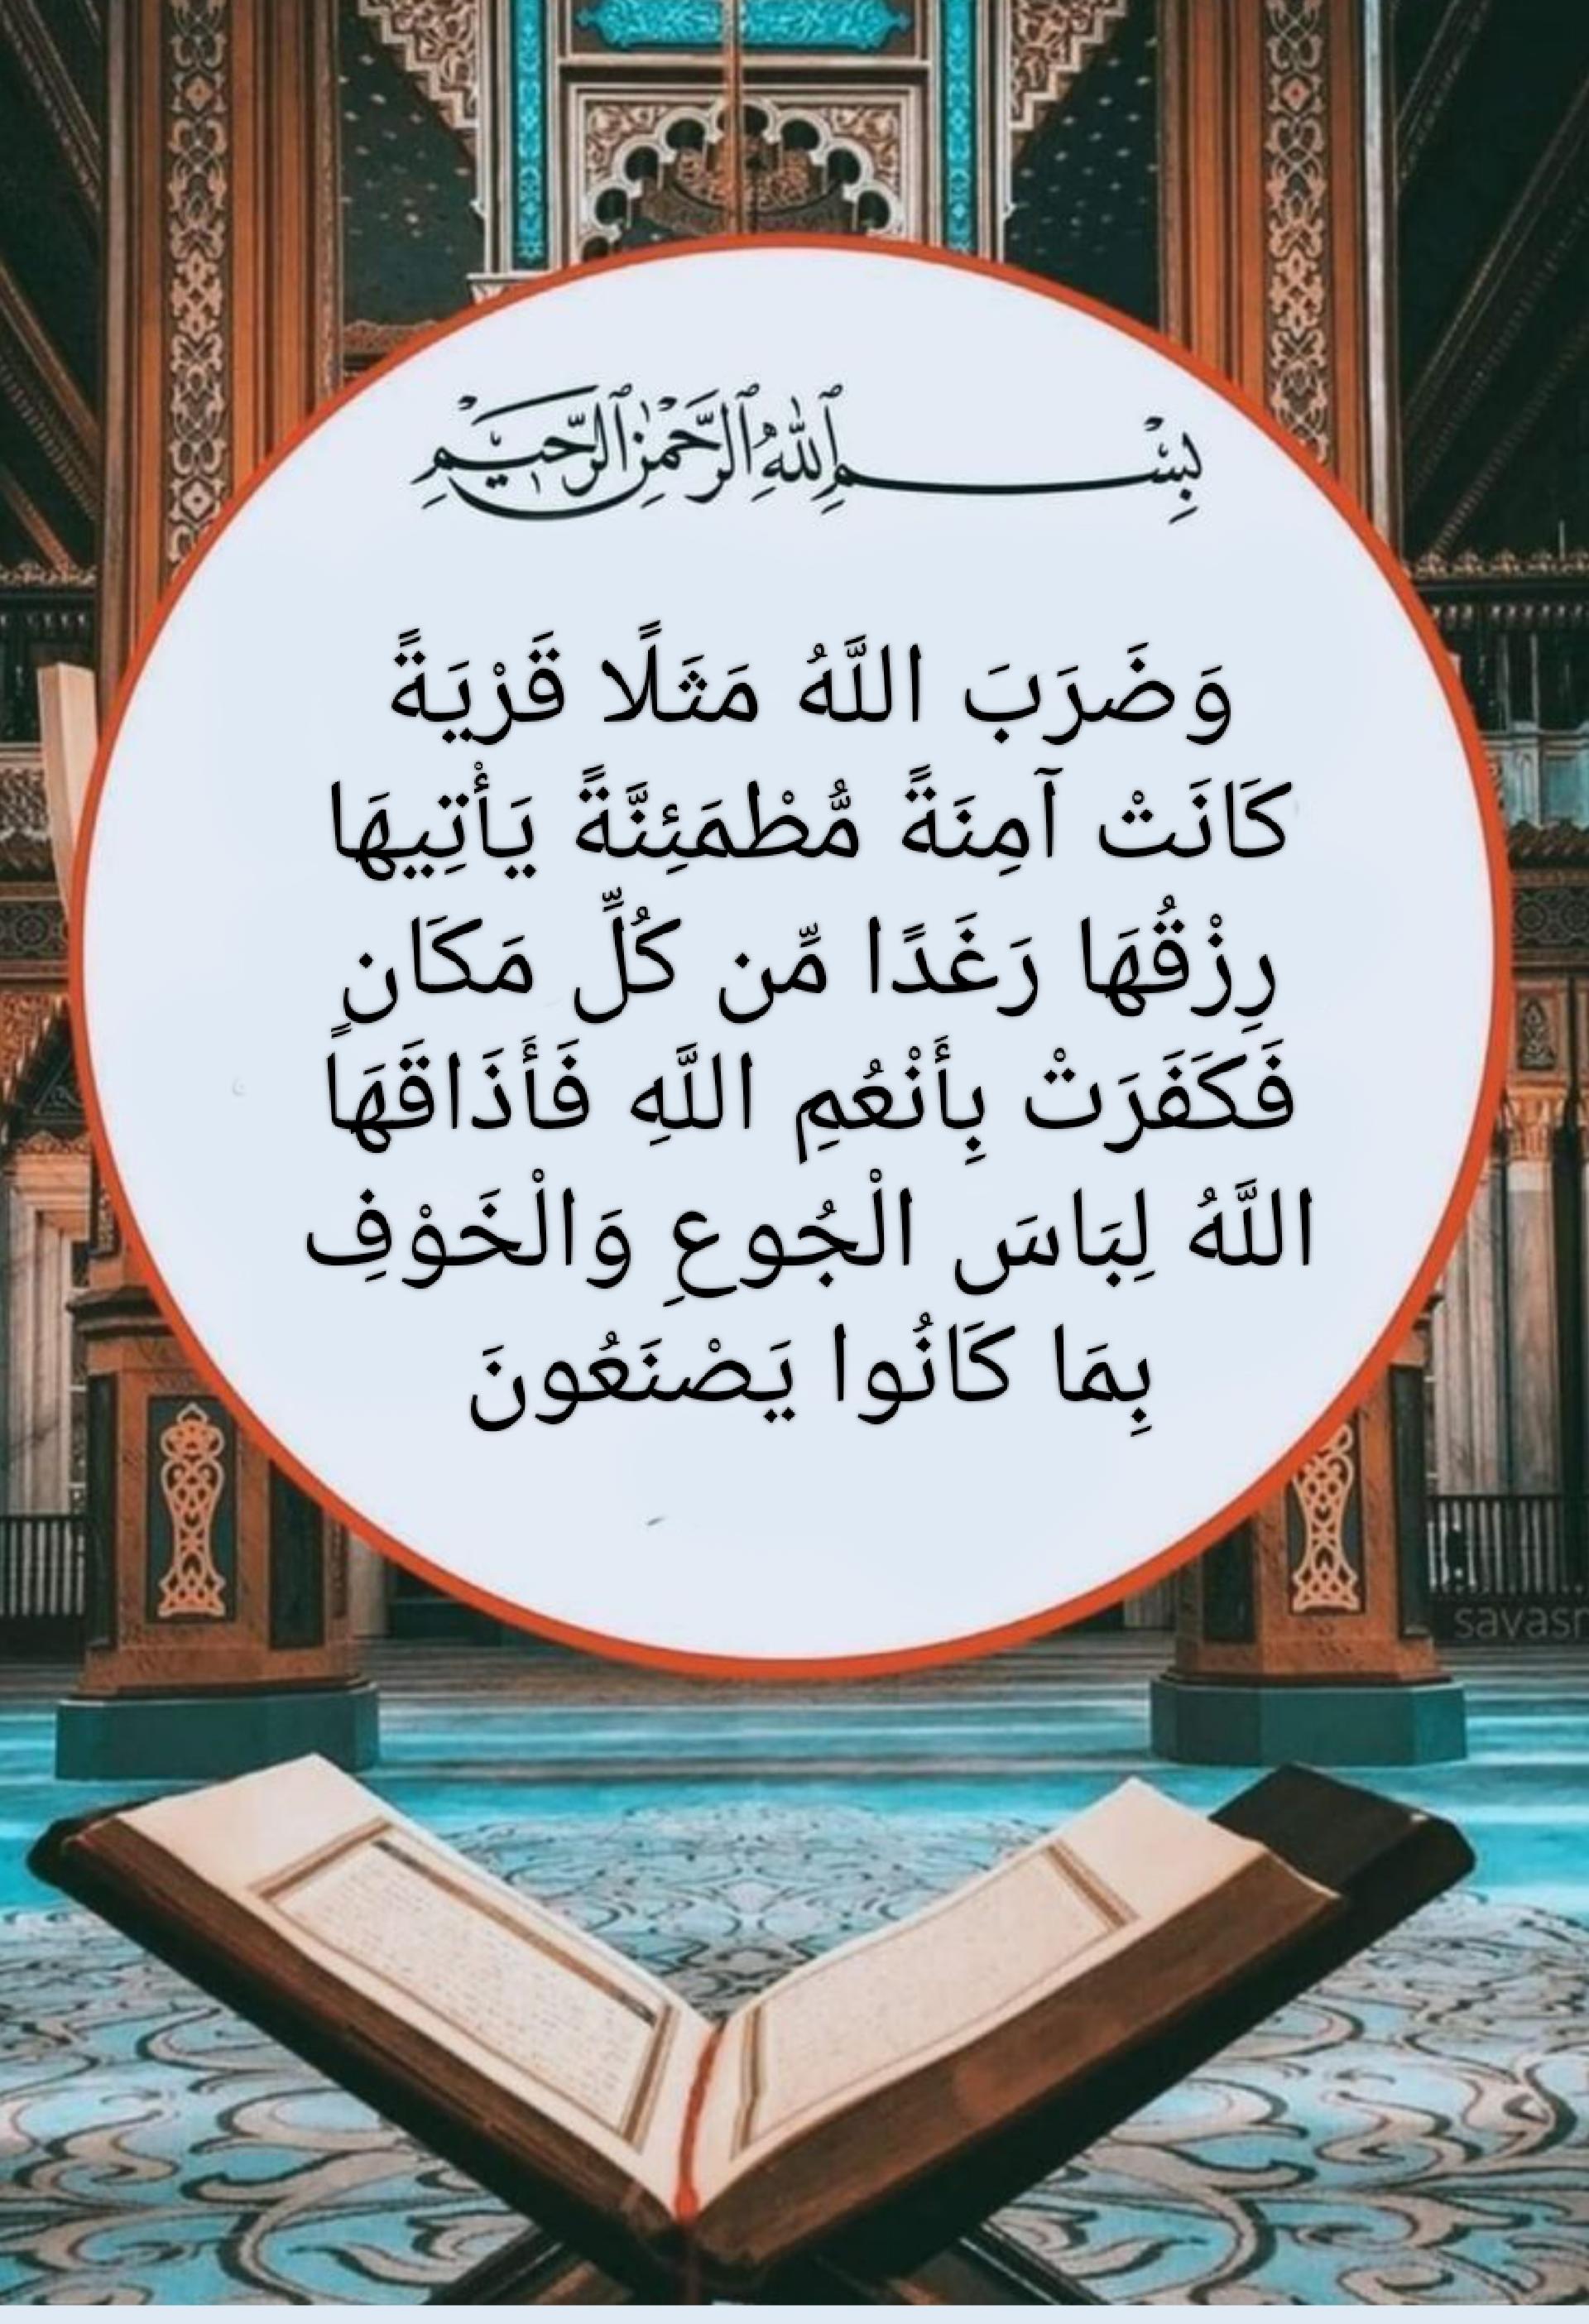 بِسْمِ ٱللَّهِ ٱلرَّحْمَٰنِ ٱلرَّحِيمِ
وَضَرَبَ اللَّهُ مَثَلًا قَرْيَةً
كَانَتْ آمِنَةً مُّطْمَئِنَّةً يَأْتِيهَا
رِزْقُهَا رَغَدًا مِّن كُلِّ مَكَانٍ
فَكَفَرَتْ بِأَنْعُمِ اللَّهِ فَأَذَاقَهَا
اللَّهُ لِبَاسَ الْجُوعِ وَالْخَوْفِ
بِمَا كَانُوا يَصْنَعُونَ